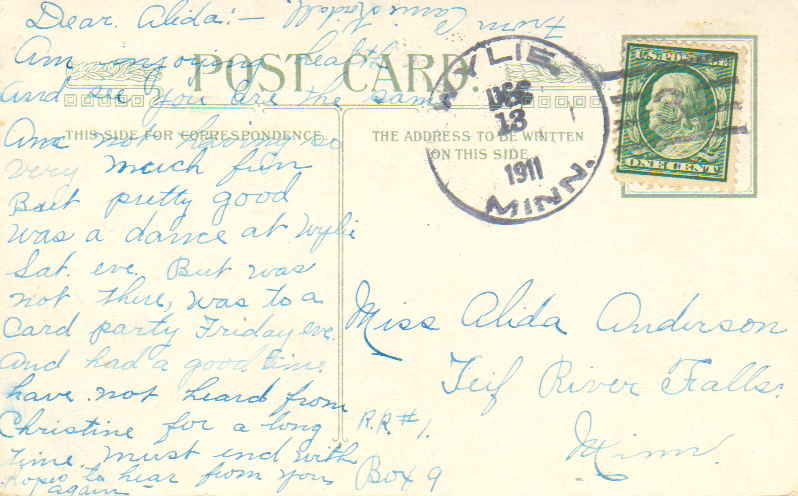 Dear Alida:-
Am enjoying health
And see you are the same
Am not having so
very much fun
But pretty good
was a dance at Wylie
Sat. eve. But was
not there, was to a
Card party Friday eve.
And had a good time.
have not heard from
Christine for a long
time. Must end with
hopes to hear from you
again -
From
POST CARD.
THIS SIDE FOR CORRESPONDENCE.
THE ADDRESS TO BE WRITTEN
ON THIS SIDE
WYLIE.
DEC
13
1911
MINN.
U.S. POSTAGE
ONE CENT
Miss Alida Anderson
Teif River Falls.
Minn.
R.R. #1.
Box 9